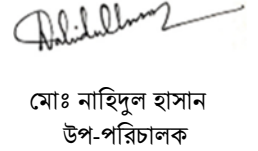 মোঃ নাহিদুল হাসান
উপ-পরিচালক